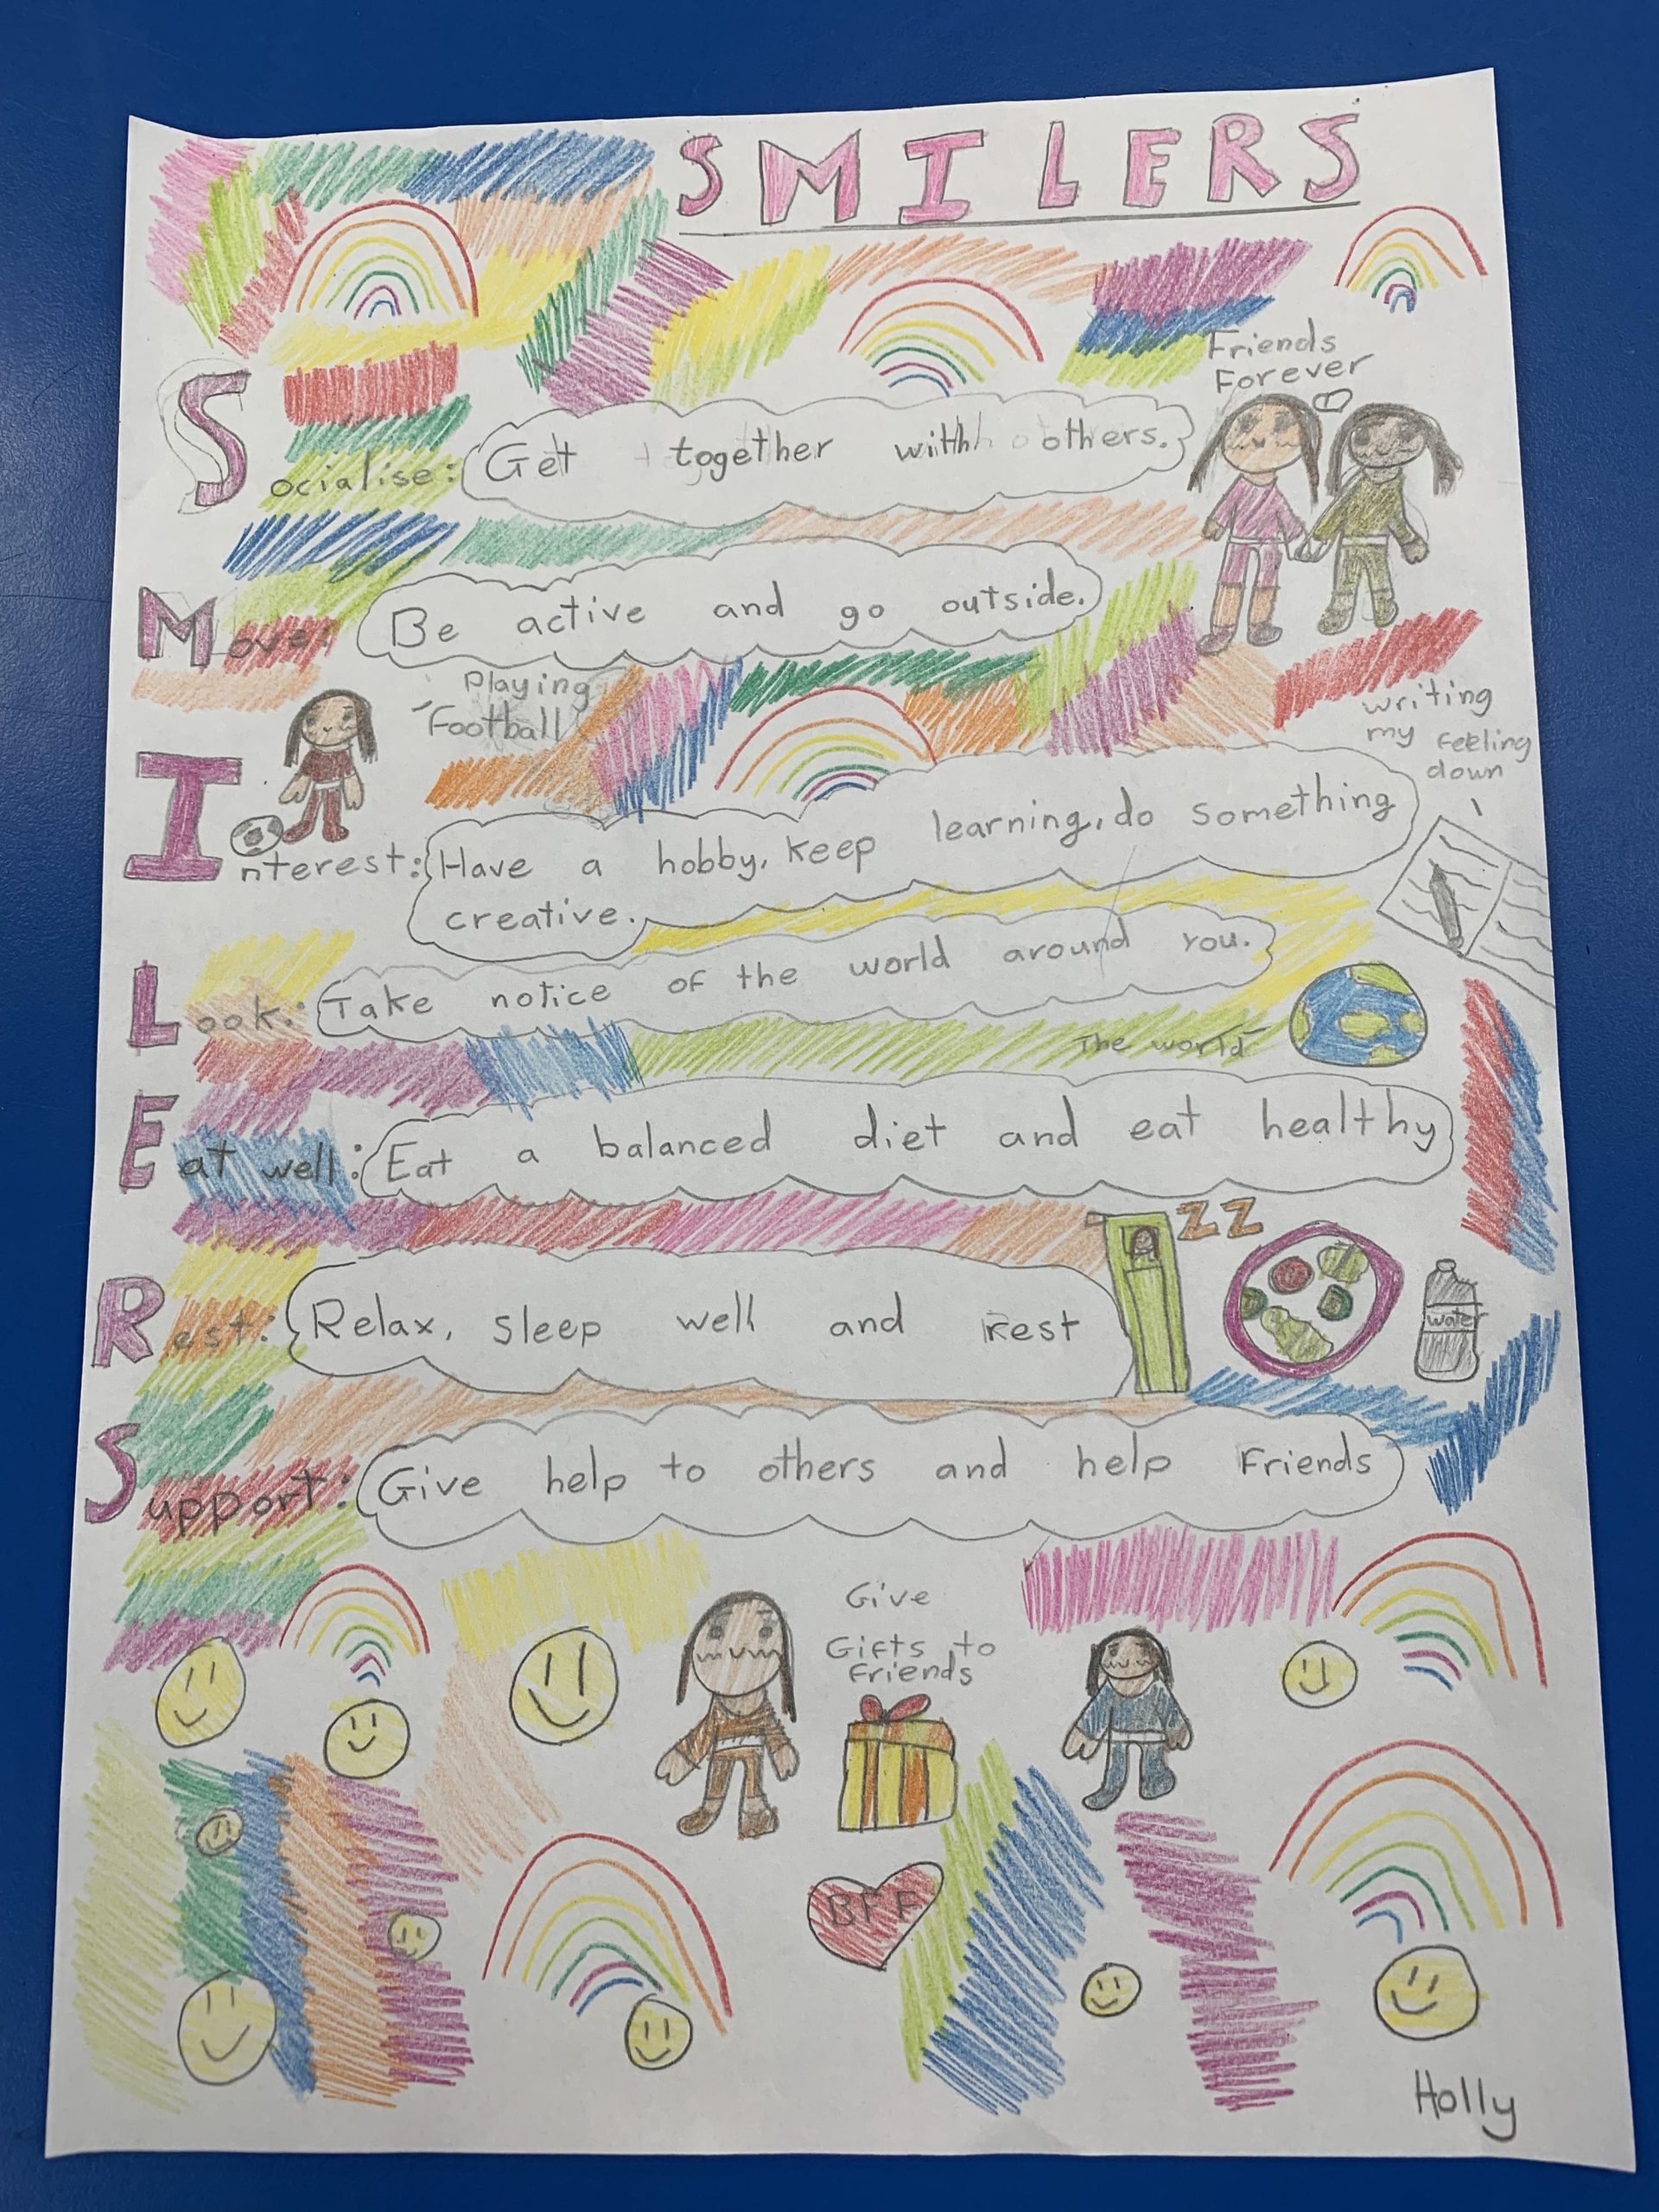 SMILERS
Friends
Forever
Socialise: Get together with others.
Move: Be active and go outside.
Playing
Football
writing
my Feeling
down
Interest: Have a hobby, keep learning, do something
creative.
Look: Take notice of the world around you.
The world
Eat well: Eat a balanced diet and eat healthy
ZZ
Rest: Relax, sleep well and rest
water
Support: Give help to others and help Friends
Give
Gifts to
Friends
BFF
Holly